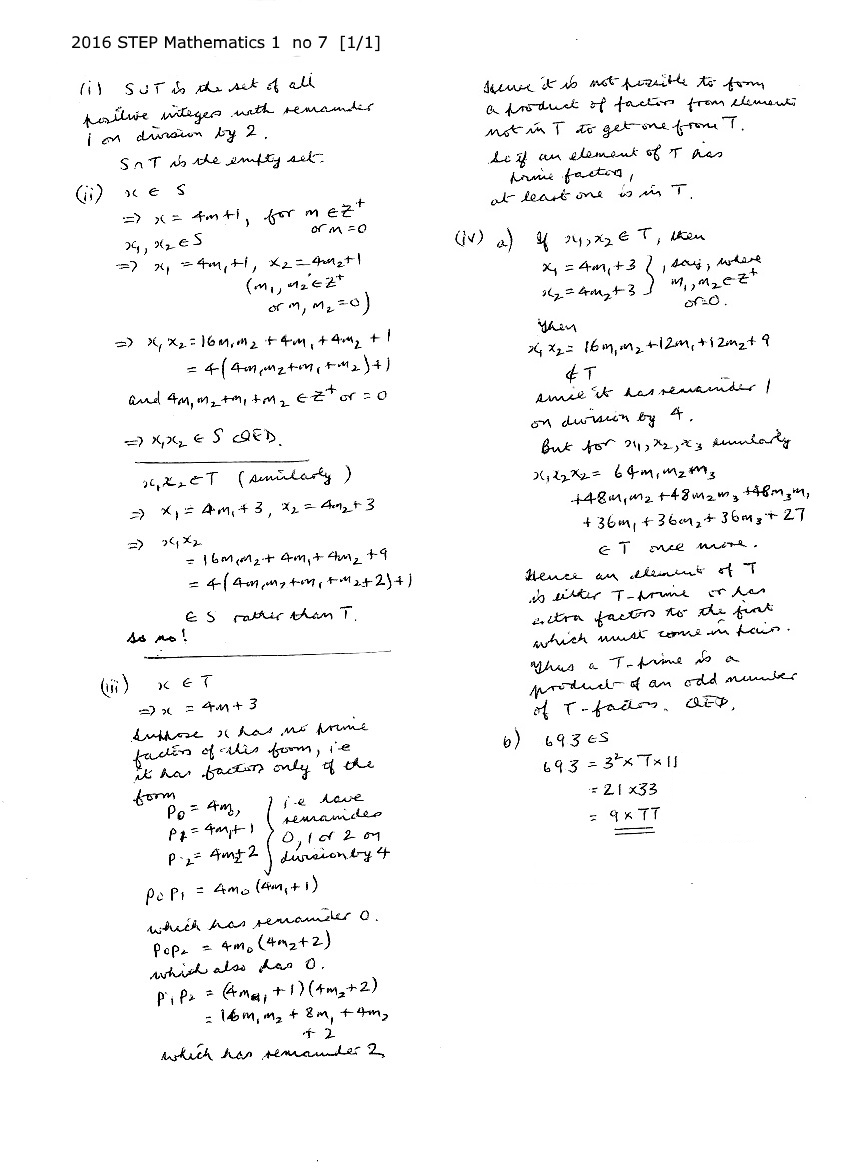 2016 STEP Mathematics 1 no 7 [1/1]
(i) S∪T is the set of all
positive integers with remainder
1 on division by 2.
S∩T is the empty set.
(ii) x ∈ S
⇒ x = 4m+1, for m ∈ Z⁺
or m=0
x₁, x₂ ∈ S
⇒ x₁ = 4m₁+1, x₂ = 4m₂+1
(m₁, m₂ ∈ Z⁺
or m₁ m₂ = 0)
⇒ x₁x₂ = 16m₁m₂ + 4m₁ + 4m₂ + 1
= 4(4m₁m₂+m₁+m₂)+1
and 4m₁m₂+m₁+m₂ ∈ Z⁺ or = 0
⇒ x₁x₂ ∈ S QED.
x₁x₂ ∈ T (similarly)
⇒ x₁ = 4m₁+3, x₂ = 4m₂+3
⇒ x₁x₂
= 16m₁m₂ + 4m₁ + 4m₂ + 9
= 4(4m₁m₂+m₁+m₂+2)+1
∈ S rather than T.
so no!
(iii) x ∈ T
⇒ x = 4m+3
Suppose x has no prime
factors of this form, i.e
it has factors only of the
form
P₀ = 4m₀ i.e leave
P₁ = 4m₁+1 remainders
0, 1 or 2 on
P₂ = 4m+2 division by 4
P₀P₁ = 4m₀(4m₁+1)
which has remainder 0.
P₀P₂ = 4m₀(4m₂+2)
which also has 0.
P₁P₂ = (4m₁+1)(4m₂+2)
= 16m₁m₂ + 8m₁ + 4m₂
+ 2
which has remainder 2
Hence it is not possible to form
a product of factors from elements
not in T to get one from T.
ie if an element of T has
prime factors,
at least one is in T.
(iv) a) If x₁, x₂ ∈ T, then
x₁ = 4m₁+3 , say, where
x₂ = 4m₂+3 m₁, m₂ ∈ Z⁺
or=0.
Then
x₁x₂ = 16m₁m₂ + 12m₁ + 12m₂ + 9
∉ T
since it has remainder 1
on division by 4.
But for x₁, x₂, x₃ similarly
x₁x₂x₂ = 64m₁m₂m₃
+48m₁m₂ + 48m₂m₃ + 48m₃m₁
+ 36m₁ + 36m₂ + 36m₃ + 27
∈ T once more.
Hence an element of T
is either T-prime or has
extra factors to the first
which must come in pairs.
Thus a T-prime is a
product of an odd number
of T-factors. QED.
b) 693 ∈ S
693 = 3² × 7 × 11
= 21 × 33
= 9 × 77